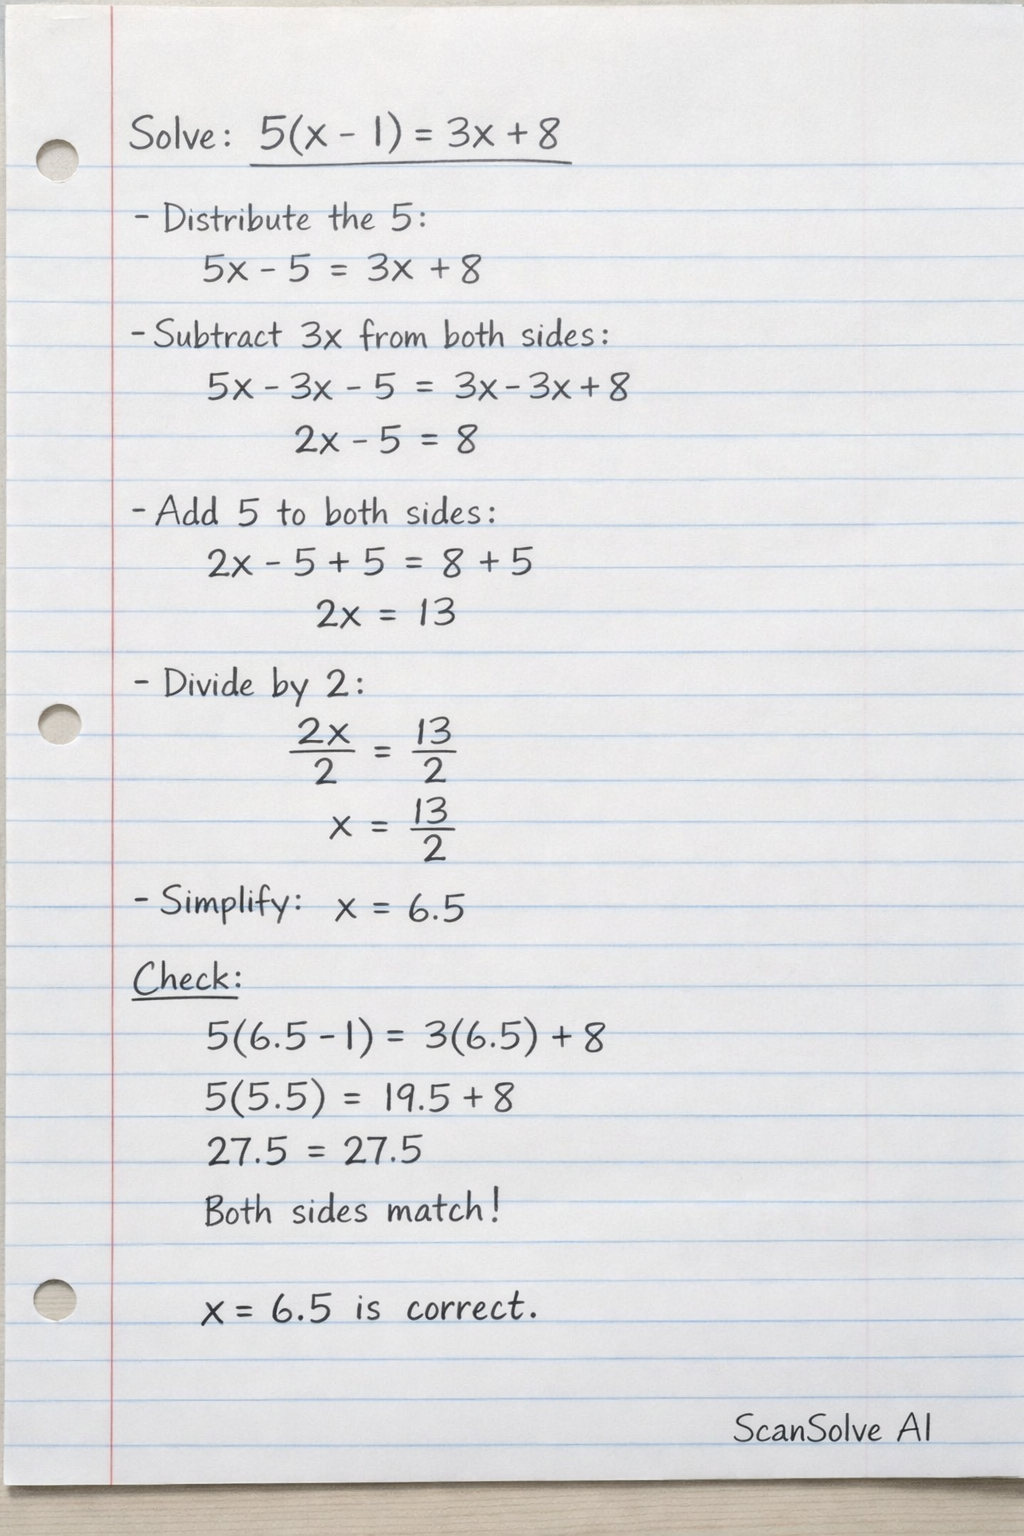 Solve: 5(x - 1) = 3x + 8
- Distribute the 5:
5x - 5 = 3x + 8
- Subtract 3x from both sides:
5x - 3x - 5 = 3x - 3x + 8
2x - 5 = 8
- Add 5 to both sides:
2x - 5 + 5 = 8 + 5
2x = 13
- Divide by 2:
2x/2 = 13/2
x = 13/2
- Simplify: x = 6.5
Check:
5(6.5 - 1) = 3(6.5) + 8
5(5.5) = 19.5 + 8
27.5 = 27.5
Both sides match!
x = 6.5 is correct.
ScanSolve AI